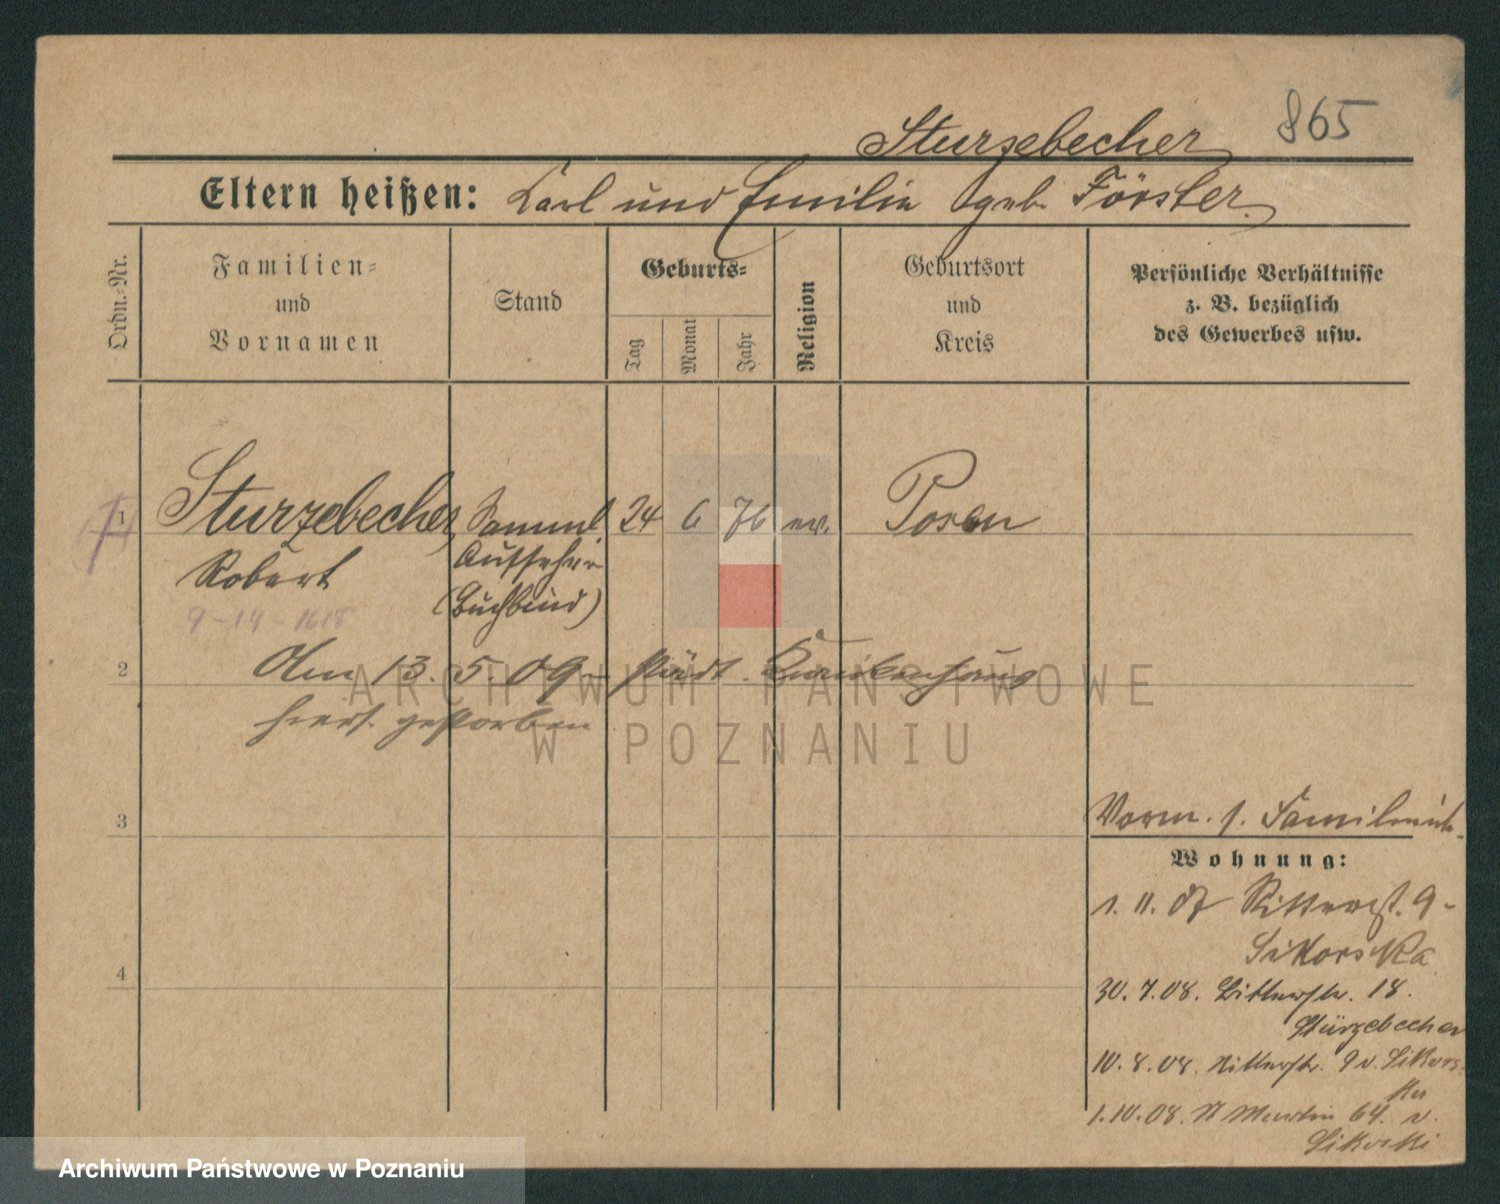 865
Sturzebecher
Eltern heißen: Carl und Emilie geb. Förster.
Ordn.-Nr.
Familien-
und
Vornamen
Stand
Geburts-
Tag
Monat
Jahr
Religion
Geburtsort
und
Kreis
Persönliche Verhältnisse
z. B. bezüglich
des Gewerbes usw.
1 Sturzebecher Samml 24 6 76 ev. Posen
Robert Aufseher
(Buchbind)
9-14-1618
2 Am 13. 5. 09 städt. Krankenhaus
hiers. gestorben
3
Vorm. s. Familien
Wohnung:
1. 11. 07 Ritterst. 9-
Sikorska
4
30. 7. 08. Ritterstr. 18.
Stürzebecher
10. 8. 08. Ritterstr. 9 v. Sikors-
ka
1. 10. 08. St Martin 64. v.
Sikorski
ARCHIWUM PAŃSTWOWE
W POZNANIU
Archiwum Państwowe w Poznaniu